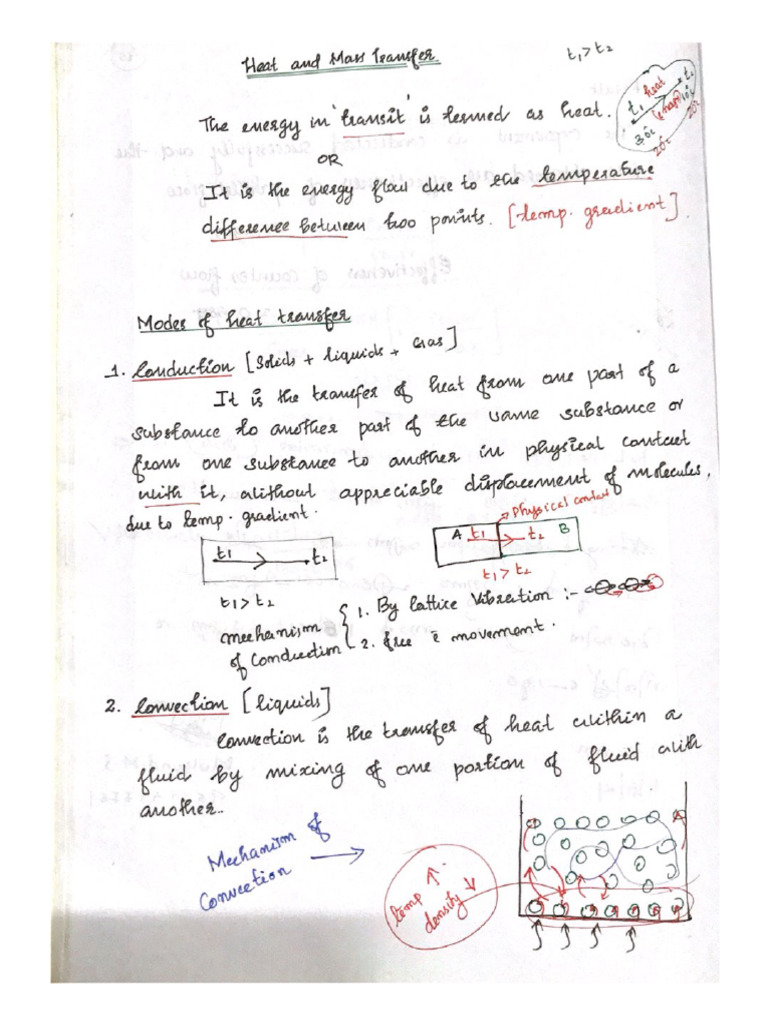 Heat and Mass Transfer.
t1>t2
The energy in 'transit' is termed as heat.
t1 heat t2
OR
It is the energy flow due to the temperature
difference between two points. [temp. gradient].
Modes of heat transfer
1. Conduction [Solids + liquids + Gas]
It is the transfer of heat from one part of a
substance to another part of the same substance or
from one substance to another in physical contact
with it, without appreciable displacement of molecules,
due to temp. gradient.
Physical contact
t1 t2
A t1 t2 B
t1>t2
t1>t2
mechanism of Conduction
1. By lattice Vibration :-
2. free e movement.
2. Convection [liquids]
Convection is the transfer of heat within a
fluid by mixing of one portion of fluid with
another..
Mechanism of
Convection
temp ↑
density ↓